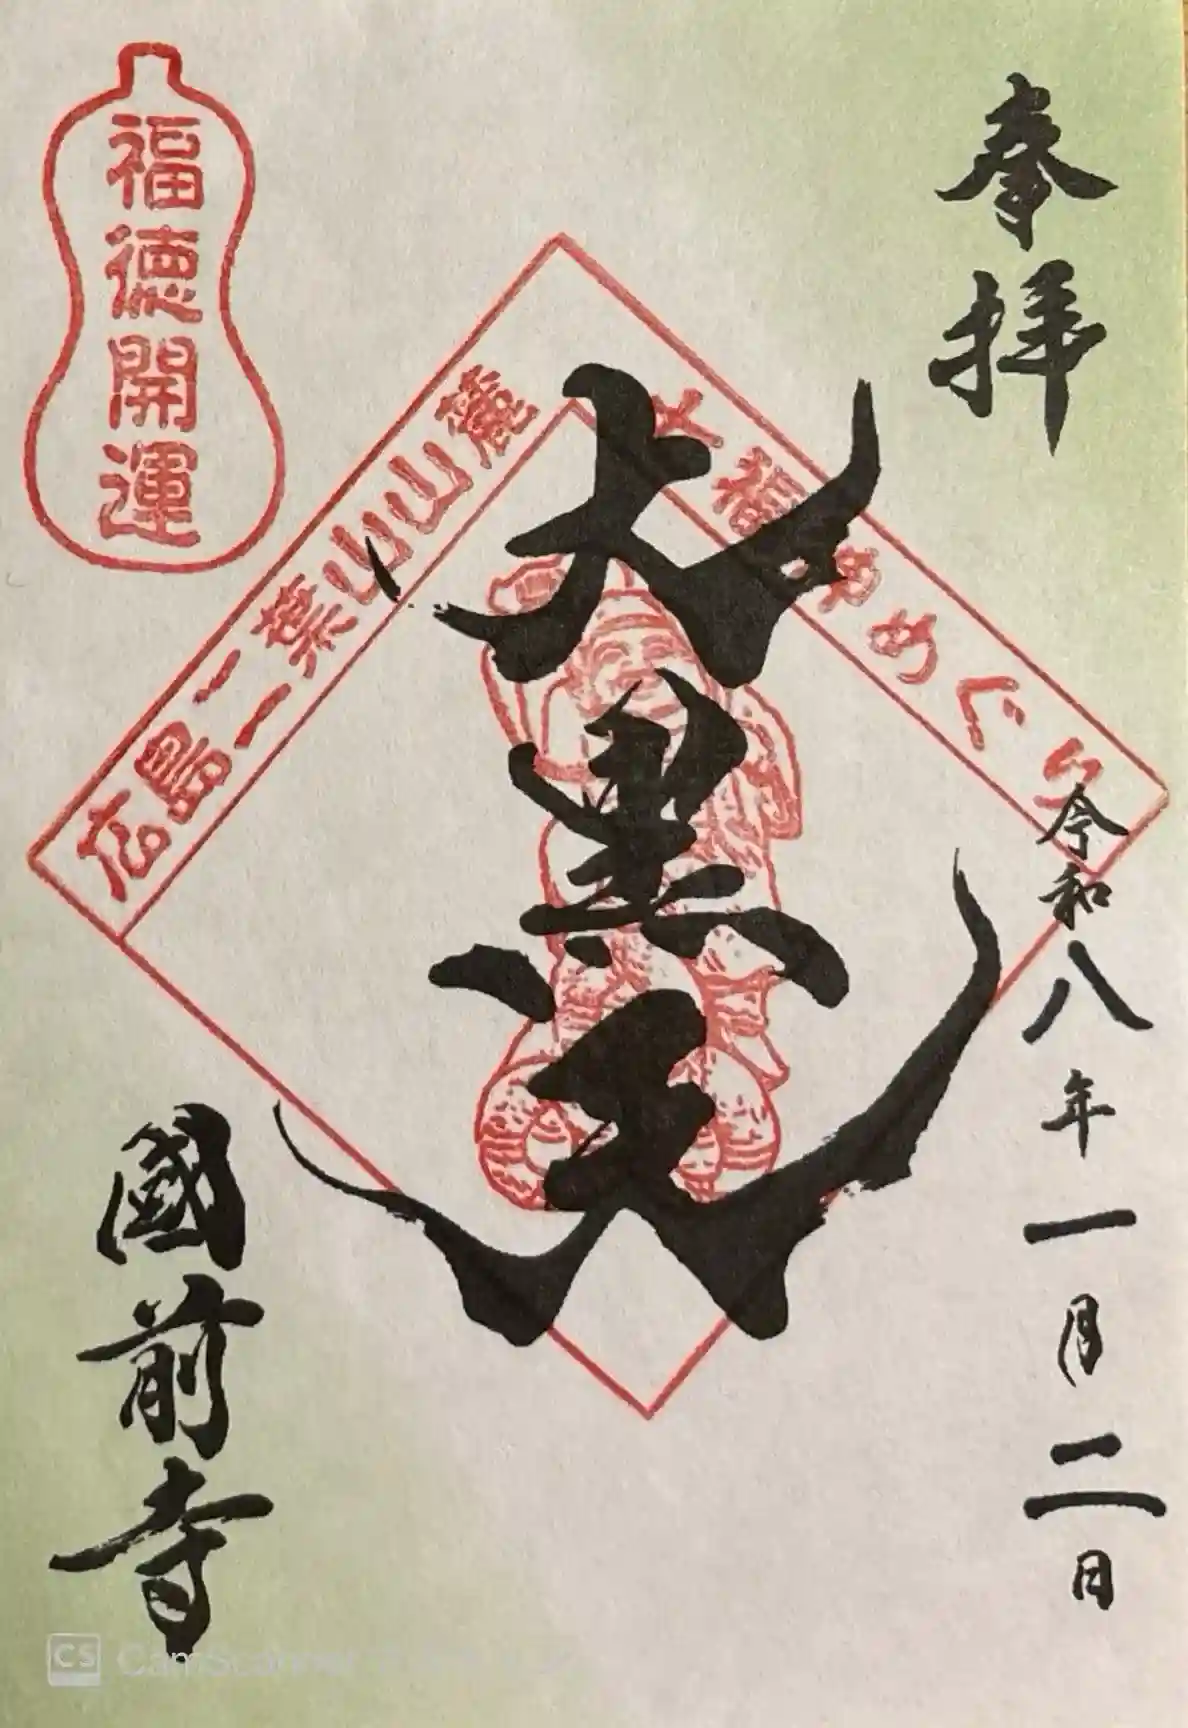 奉拝
令和八年一月二日
大黒天
七福神めぐり
広島二葉山山麓
福徳開運
國前寺
CS CamScanner